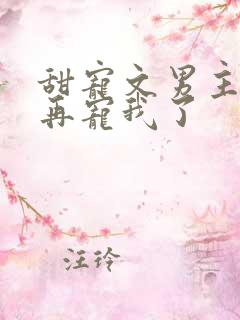 甜宠文男主
再宠我了
汪玲